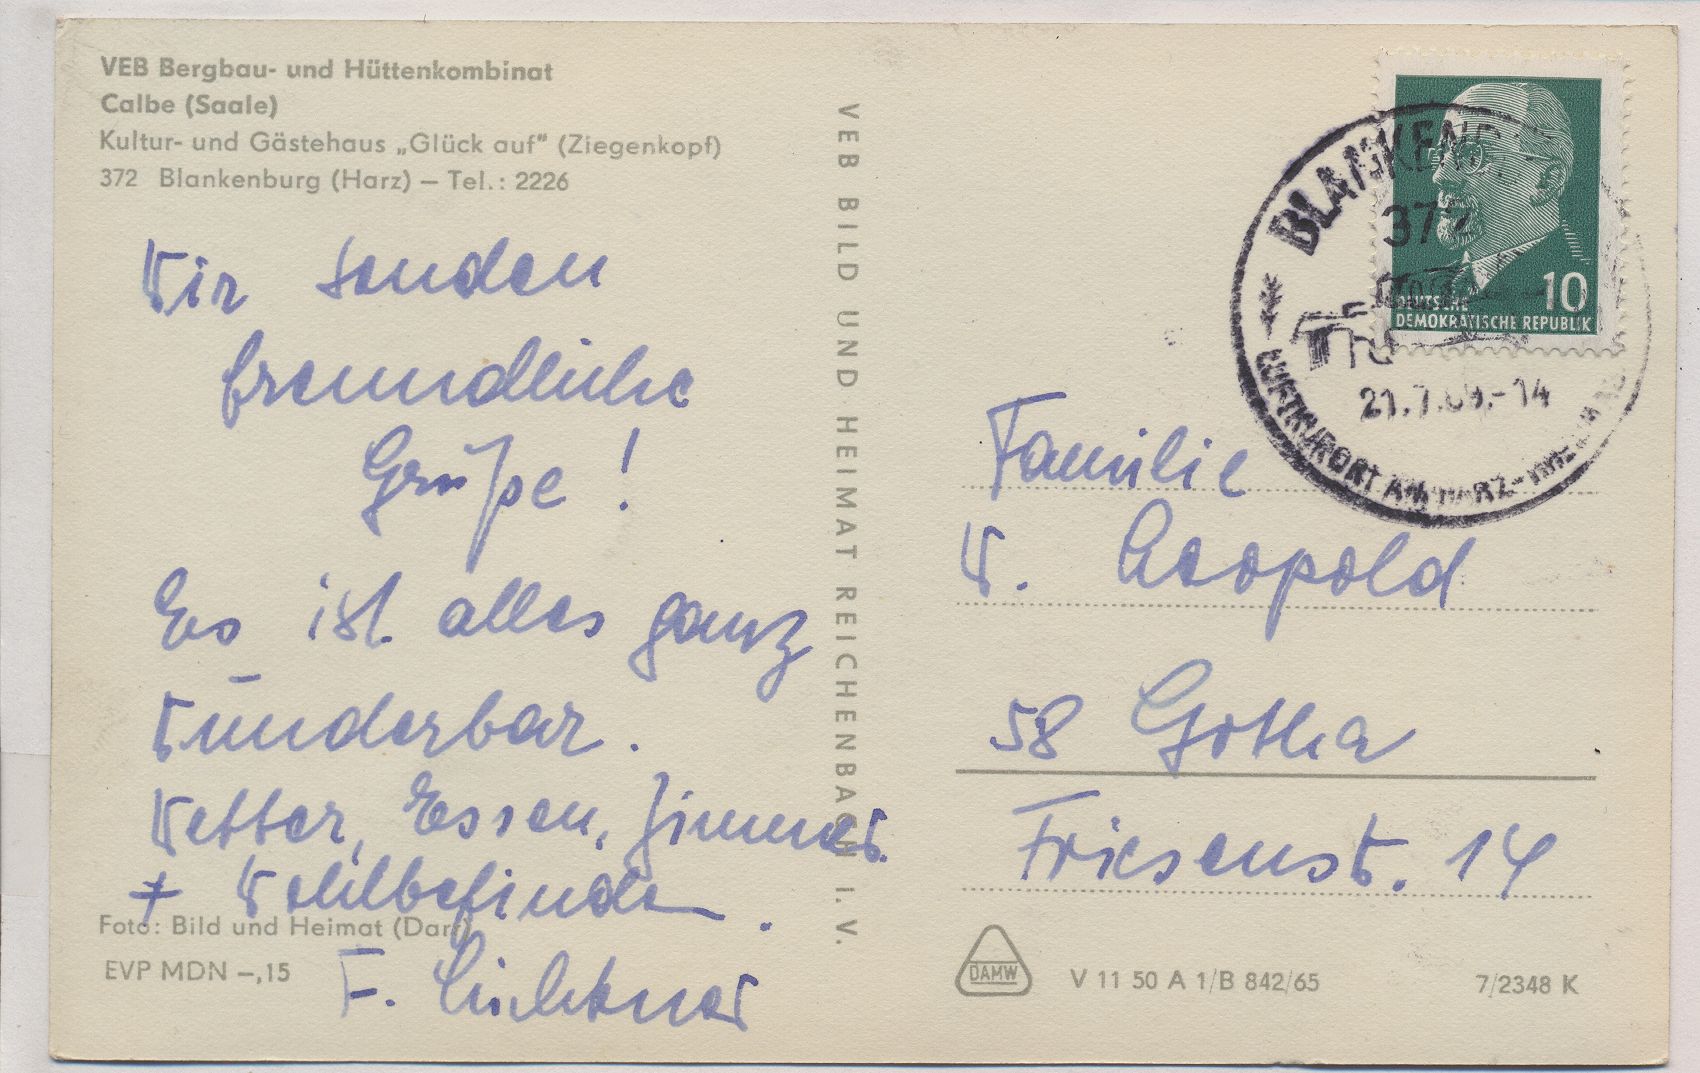 VEB Bergbau- und Hüttenkombinat
Calbe (Saale)
Kultur- und Gästehaus „Glück auf" (Ziegenkopf)
372 Blankenburg (Harz) – Tel.: 2226
Wir senden
freundliche
Grüße !
Es ist alles ganz
wunderbar.
Wetter, Essen, Zimmer
+ Wohlbefinden.
F.
Foto: Bild und Heimat (Darr)
EVP MDN –,15
VEB BILD UND HEIMAT REICHENBACH I. V.
10
DEUTSCHE
DEMOKRATISCHE REPUBLIK
372
21.7.69.-14
LUFTKURORT AM HARZ-
Familie
W. Leopold
58 Gotha
Friesenstr. 14
DAMW
V 11 50 A 1/B 842/65
7/2348 K